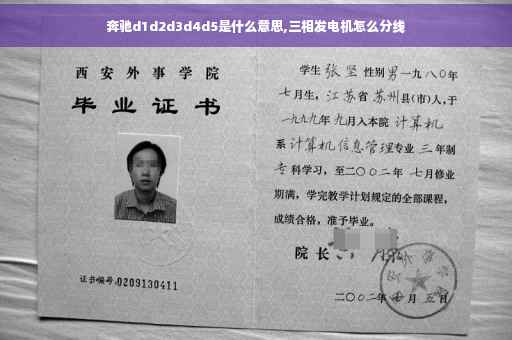 奔驰d1d2d3d4d5是什么意思,三相发电机怎么分线
西安外事学院
毕业证书
证书编号:0209130411
学生 张坚 性别 男 一九八〇年
七月生, 江苏省 苏州县(市)人, 于
一九九九年 九月入本院 计算机
系 计算机信息管理专业 三 年制
专科学习, 至二〇〇二年 七月修业
期满, 学完教学计划规定的全部课程,
成绩合格, 准予毕业。
院长
二〇〇二年 七 月 五 日